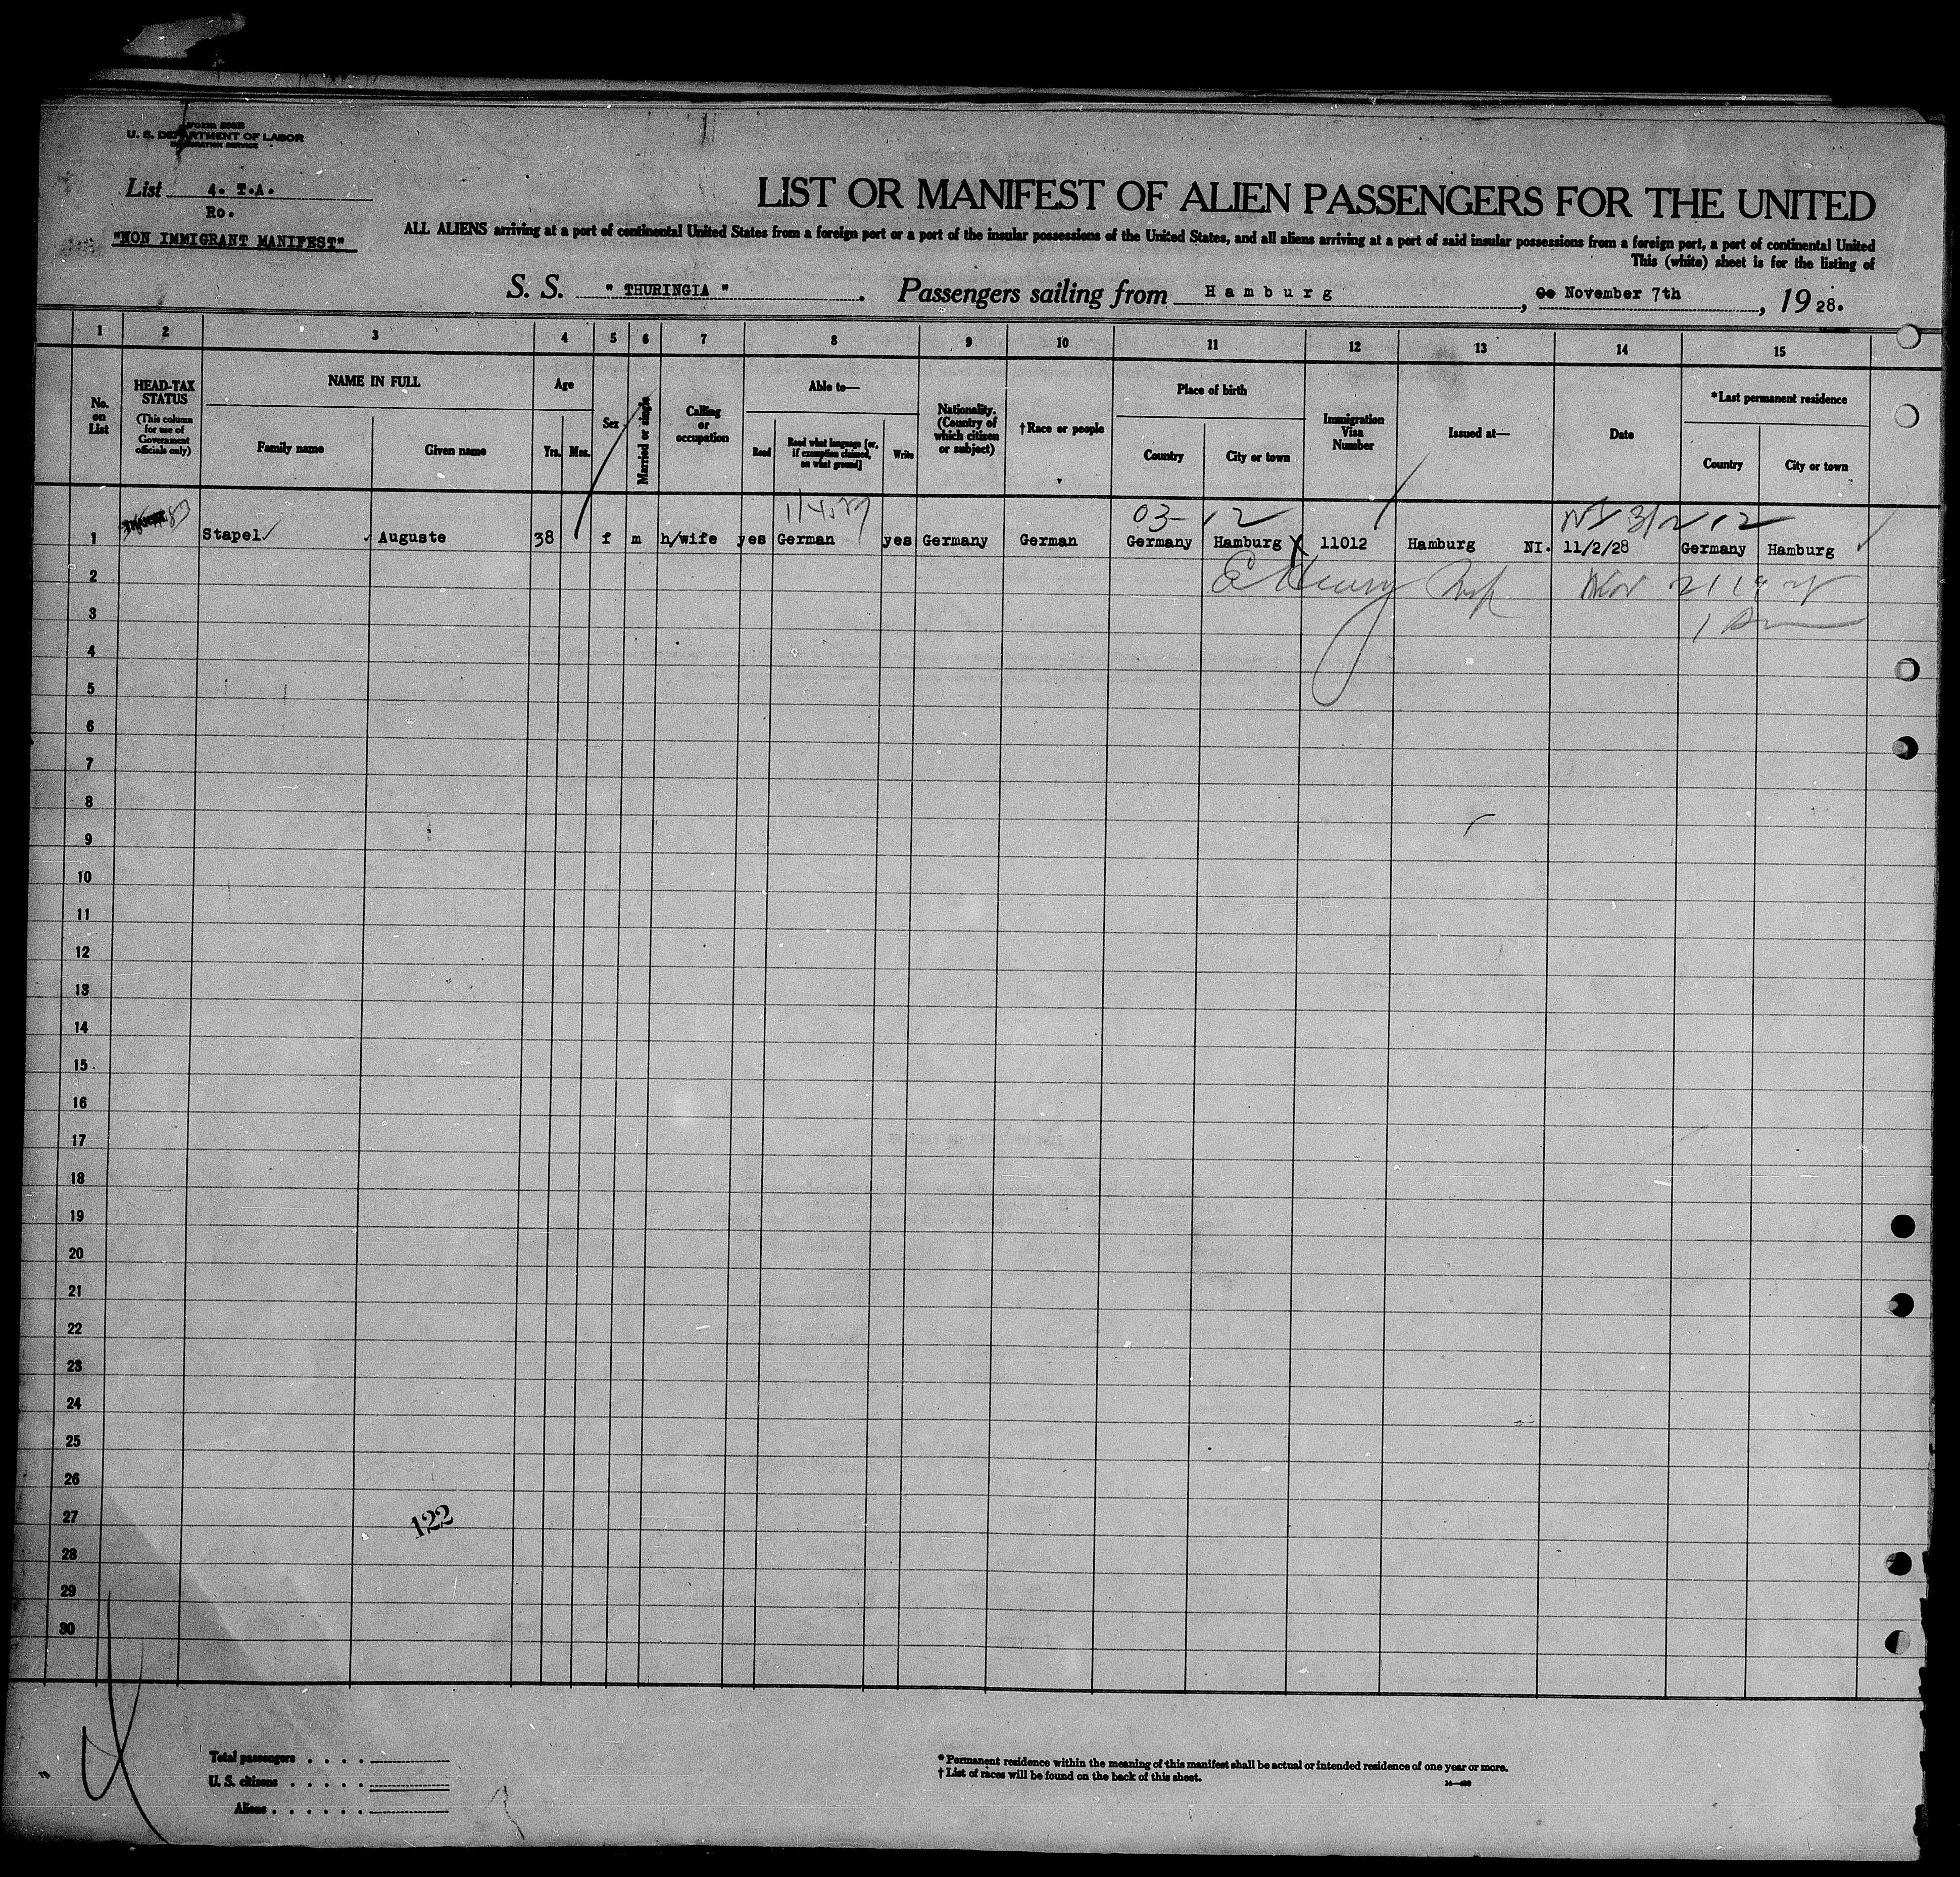 Form 500B
U. S. DEPARTMENT OF LABOR
IMMIGRATION SERVICE
List 4. T.A.
Ro.
"NON IMMIGRANT MANIFEST"
LIST OR MANIFEST OF ALIEN PASSENGERS FOR THE UNITED
ALL ALIENS arriving at a port of continental United States from a foreign port or a port of the insular possessions of the United States, and all aliens arriving at a port of said insular possessions from a foreign port, a port of continental United
This (white) sheet is for the listing of
S. S. " THURINGIA ". Passengers sailing from Hamburg, November 7th, 1928.
1 2 3 4 5 6 7 8 9 10 11 12 13 14 15
No. on List
HEAD-TAX STATUS
(This column for use of Government officials only)
NAME IN FULL
Family name
Given name
Age
Yrs.
Mos.
Sex
Married or single
Calling or occupation
Able to—
Read
Read what language [or, if exemption claimed, on what ground]
Write
Nationality. (Country of which citizen or subject)
†Race or people
Place of birth
Country
City or town
Immigration Visa Number
Issued at—
Date
*Last permanent residence
Country
City or town
03- 12
1 Stapel Auguste 38 f m h/wife yes German yes Germany German Germany Hamburg 11012 Hamburg NI. 11/2/28 Germany Hamburg
2
3
4
5
6
7
8
9
10
11
12
13
14
15
16
17
18
19
20
21
22
23
24
25
26
27
122
28
29
30
Total passengers
U. S. citizens
Aliens
* Permanent residence within the meaning of this manifest shall be actual or intended residence of one year or more.
† List of races will be found on the back of this sheet.